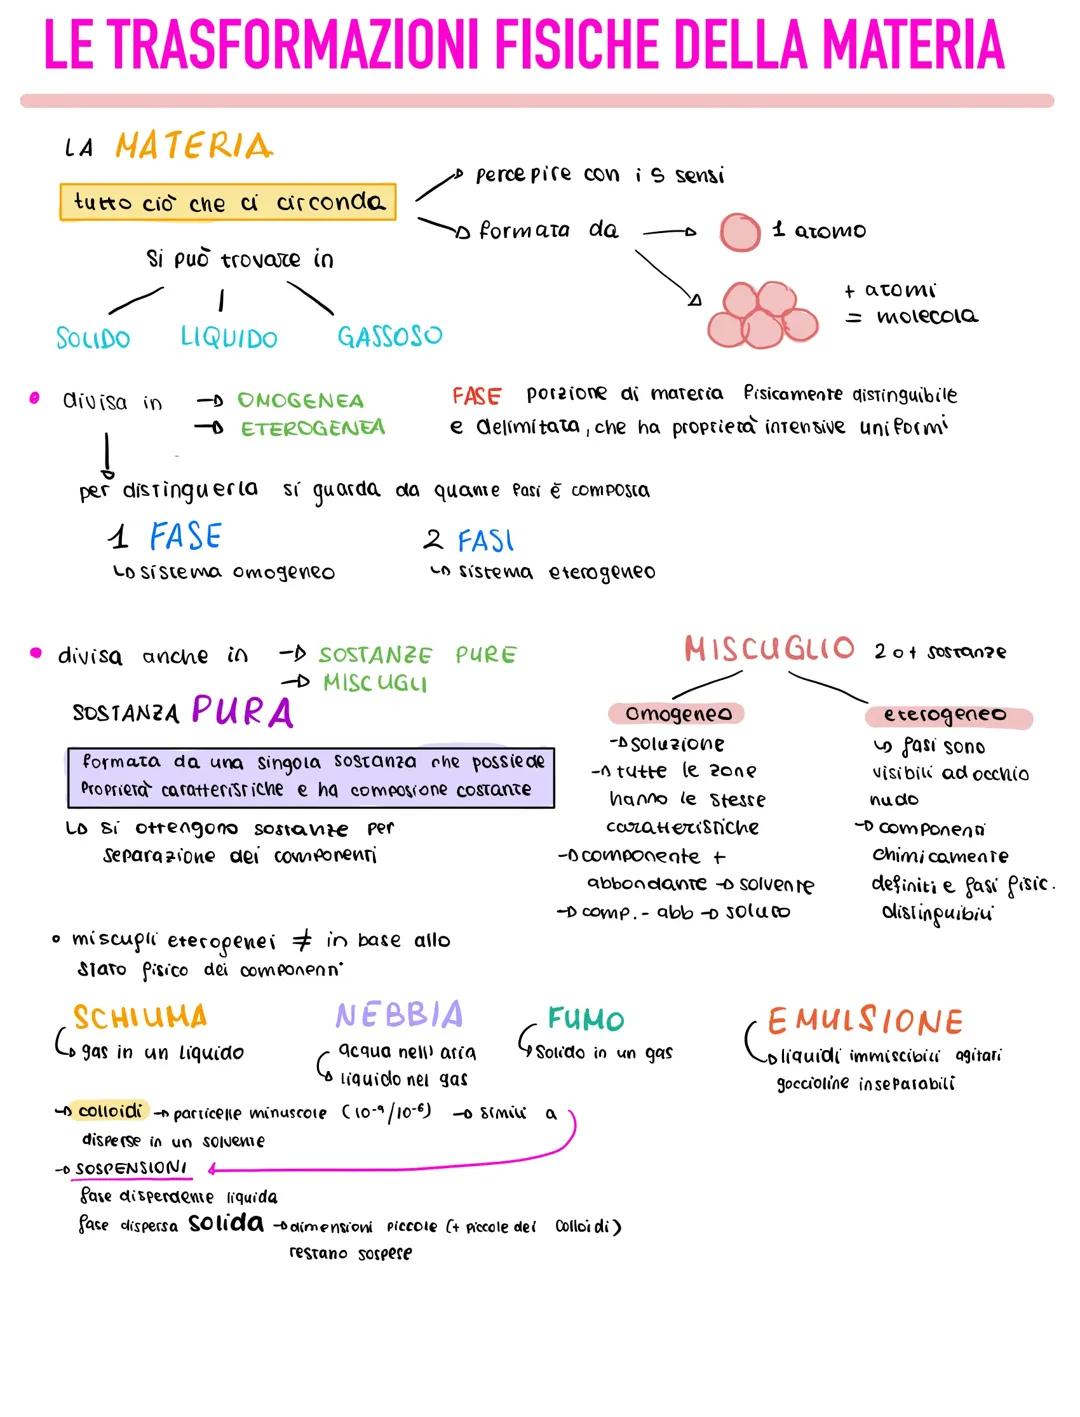 LE TRASFORMAZIONI FISICHE DELLA MATERIA
LA MATERIA
tutto ciò che ci circonda
percepire con i 5 sensi
formata da
1 atomo
+ atomi
= molecola
si può trovare in
SOLIDO LIQUIDO GASSOSO
divisa in → OMOGENEA
→ ETEROGENEA
FASE porzione di materia fisicamente distinguibile
e delimitata, che ha proprietà intensive uniformi
per distinguerla si guarda da quante fasi è composta
1 FASE
↳ sistema omogeneo
2 FASI
↳ sistema eterogeneo
divisa anche in → SOSTANZE PURE
→ MISCUGLI
SOSTANZA PURA
formata da una singola sostanza che possiede
proprietà caratteristiche e ha composione costante
↳ si ottengono sostanze per
separazione dei componenti
MISCUGLIO 2 o + sostanze
omogeneo
→ soluzione
→ tutte le zone
hanno le stesse
caratteristiche
→ componente +
abbondante → solvente
→ comp. - abb → soluto
eterogeneo
↳ fasi sono
visibili ad occhio
nudo
→ componenti
chimicamente
definiti e fasi fisic.
distinguibili
miscugli eterogenei ≠ in base allo
stato fisico dei componenti
SCHIUMA
↳ gas in un liquido
NEBBIA
acqua nell' aria
↳ liquido nel gas
FUMO
↳ solido in un gas
EMULSIONE
↳ liquidi immiscibili agitati
goccioline inseparabili
→ colloidi → particelle minuscole (10-9/10-6) → simili a
disperse in un solvente
→ SOSPENSIONI
fase disperdente liquida
fase dispersa solida → dimensioni piccole (+ piccole dei colloidi)
restano sospese